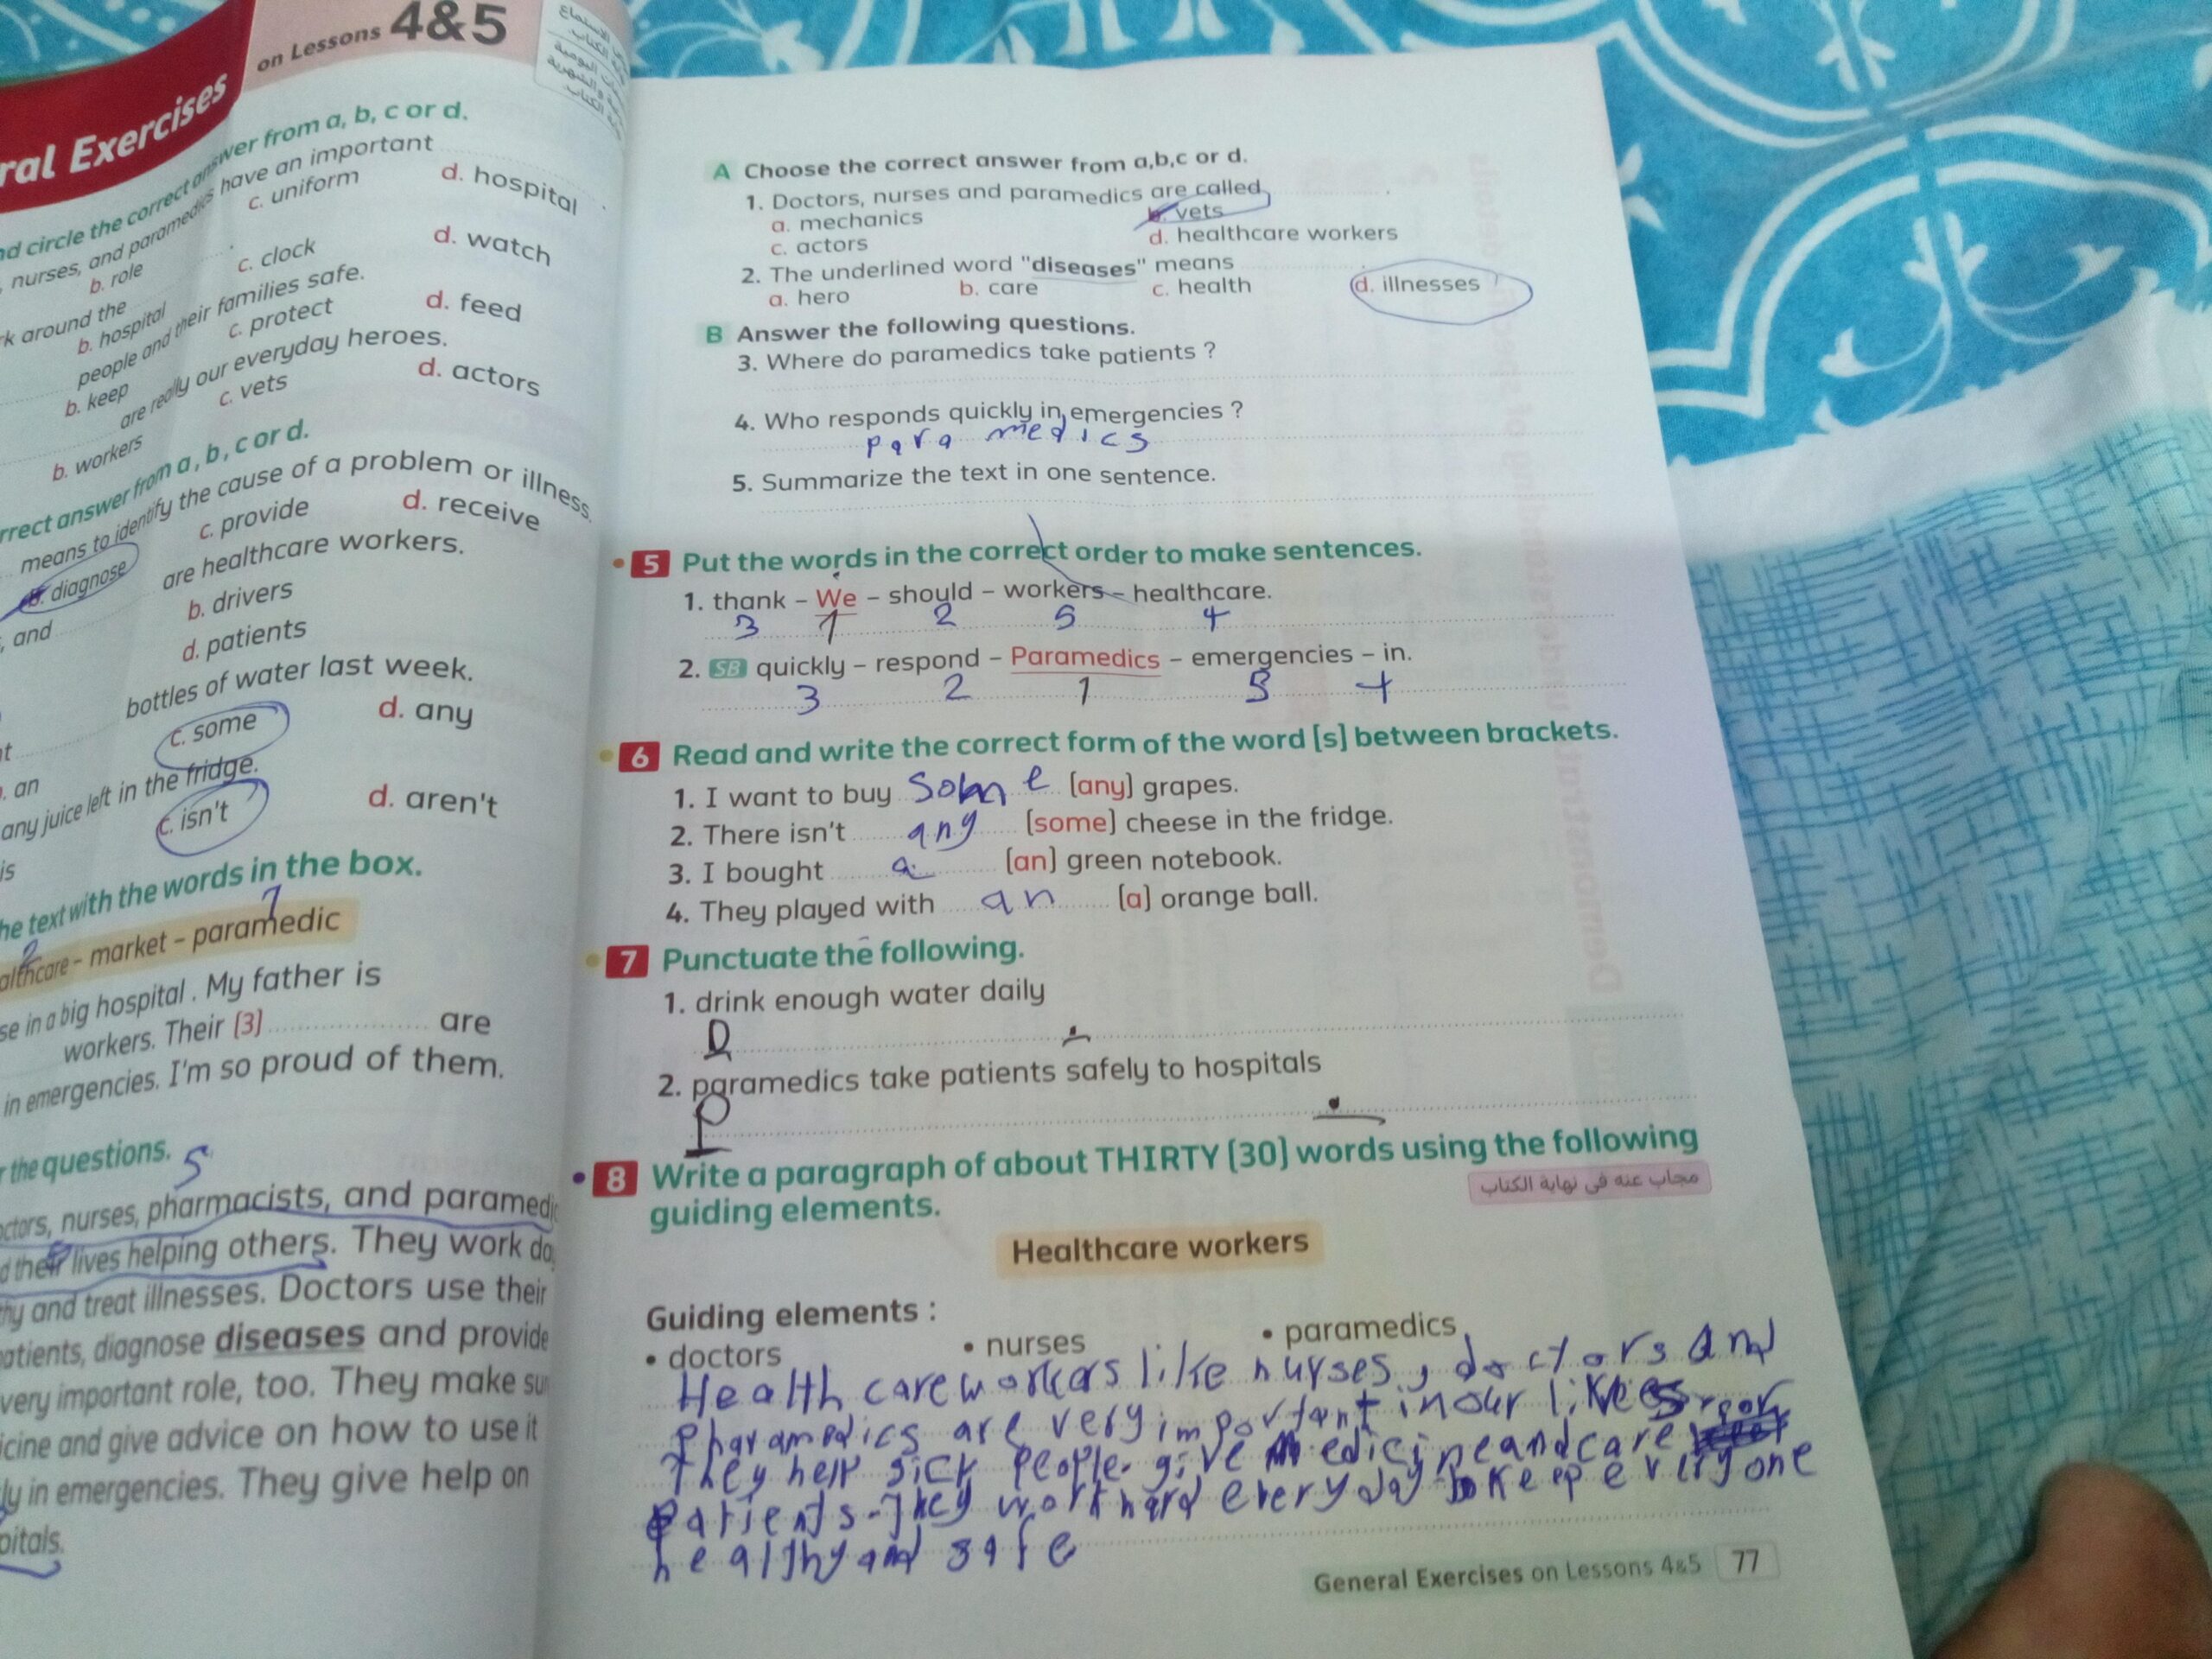 ral Exercises
on Lessons 4&5
nd circle the correct answer from a, b, c or d.
nurses, and paramedics have an important
b. role c. uniform d. hospital
rk around the
b. hospital c. clock d. watch
people and their families safe.
b. keep c. protect d. feed
are really our everyday heroes.
b. workers c. vets d. actors
rrect answer from a, b, c or d.
means to identify the cause of a problem or illness.
b. diagnose c. provide d. receive
, and are healthcare workers.
b. drivers
d. patients
bottles of water last week.
. an c. some d. any
any juice left in the fridge.
is c. isn't d. aren't
he text with the words in the box.
2 1
althcare – market – paramedic
se in a big hospital. My father is
workers. Their (3) are
in emergencies. I'm so proud of them.
r the questions. 5
ctors, nurses, pharmacists, and paramedi
d their lives helping others. They work da
hy and treat illnesses. Doctors use their
atients, diagnose diseases and provide
very important role, too. They make su
icine and give advice on how to use it
ly in emergencies. They give help on
pitals.
A Choose the correct answer from a,b,c or d.
1. Doctors, nurses and paramedics are called
a. mechanics b. vets
c. actors d. healthcare workers
2. The underlined word "diseases" means
a. hero b. care c. health d. illnesses
B Answer the following questions.
3. Where do paramedics take patients ?
4. Who responds quickly in emergencies ?
para medics
5. Summarize the text in one sentence.
5 Put the words in the correct order to make sentences.
1. thank – We – should – workers – healthcare.
3 1 2 5 4
2. SB quickly – respond – Paramedics – emergencies – in.
3 2 1 5 4
6 Read and write the correct form of the word [s] between brackets.
1. I want to buy some [any] grapes.
2. There isn't any [some] cheese in the fridge.
3. I bought a [an] green notebook.
4. They played with an [a] orange ball.
7 Punctuate the following.
1. drink enough water daily
D .
2. paramedics take patients safely to hospitals
P .
8 Write a paragraph of about THIRTY (30) words using the following
guiding elements.
مجاب عنه فى نهاية الكتاب
Healthcare workers
Guiding elements :
• doctors • nurses • paramedics
Health care workers like nurses, doctors and
pharamedics are very important in our lives
They help sick people. give medicine and care
patients. They work hard every day keep everyone
healthy and safe
General Exercises on Lessons 4&5 77